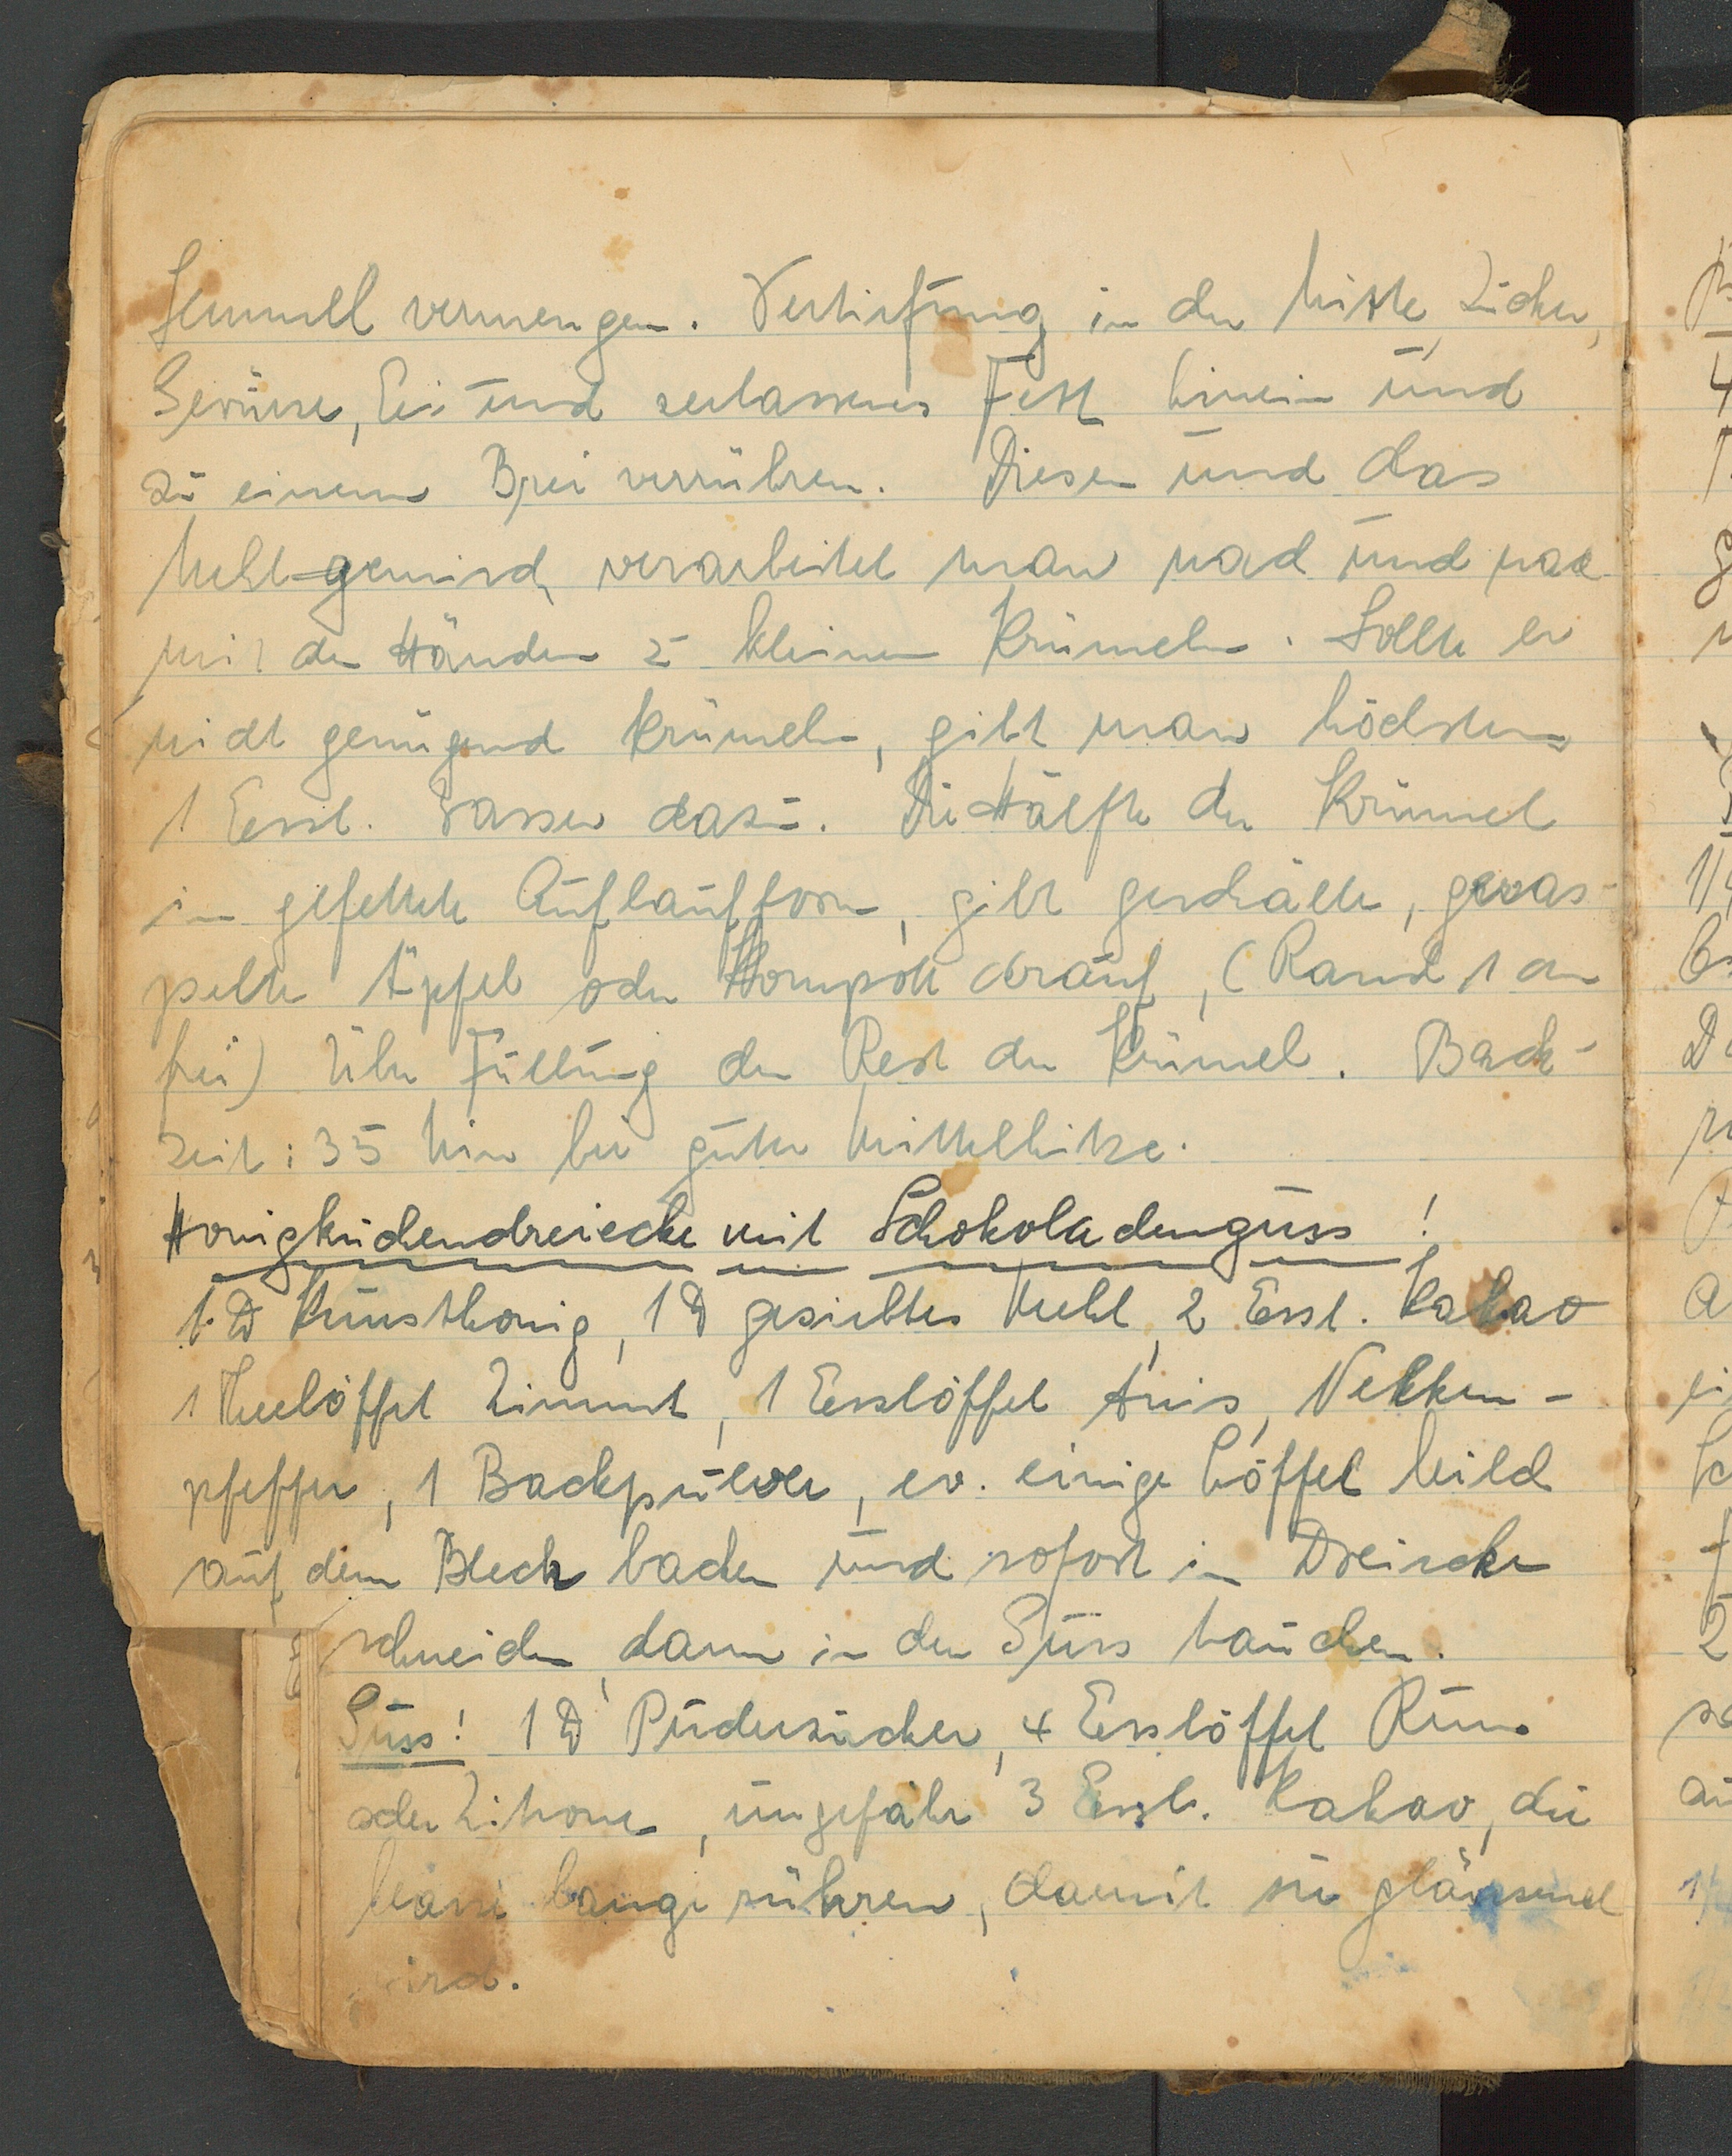 Semmel vermengen. Vertiefung in der Mitte, Zucker,
Gewürze, Ei und zerlassenes Fett hinein und
zu einem Brei verrühren. Diesen und das
Mehl-gemisch verarbeitet man nach und nach
mit den Händen z. kleinen Krümeln. Sollte er
nicht genügend krümeln, gibt man höchstens
1 Essl. Wasser dazu. Die Hälfte der Krümel
in gefettete Auflaufform, gibt geschälte, geras-
pelte Äpfel oder Kompott drauf, (Rand 1 cm
frei) Über Füllung den Rest der Krümel. Back-
zeit: 35 Min bei guter Mittelhitze.
Honigkuchendreiecke mit Schokoladenguss!
1 ℔ Kunsthonig, 1 ℔ gesiebtes Mehl, 2 Essl. Kakao
1 Theelöffel Zimmt, 1 Esslöffel Anis, Nelken-
pfeffer, 1 Backpulver, ev. einige Löffel Milch
auf dem Blech backen und sofort in Dreiecke
schneiden, dann in den Guss tauchen.
Guss! 1 ℔ Puderzucker, 4 Esslöffel Rum
oder Zitrone, ungefähr 3 Essl. Kakao, die
Masse lange rühren, damit sie glänzend
wird.